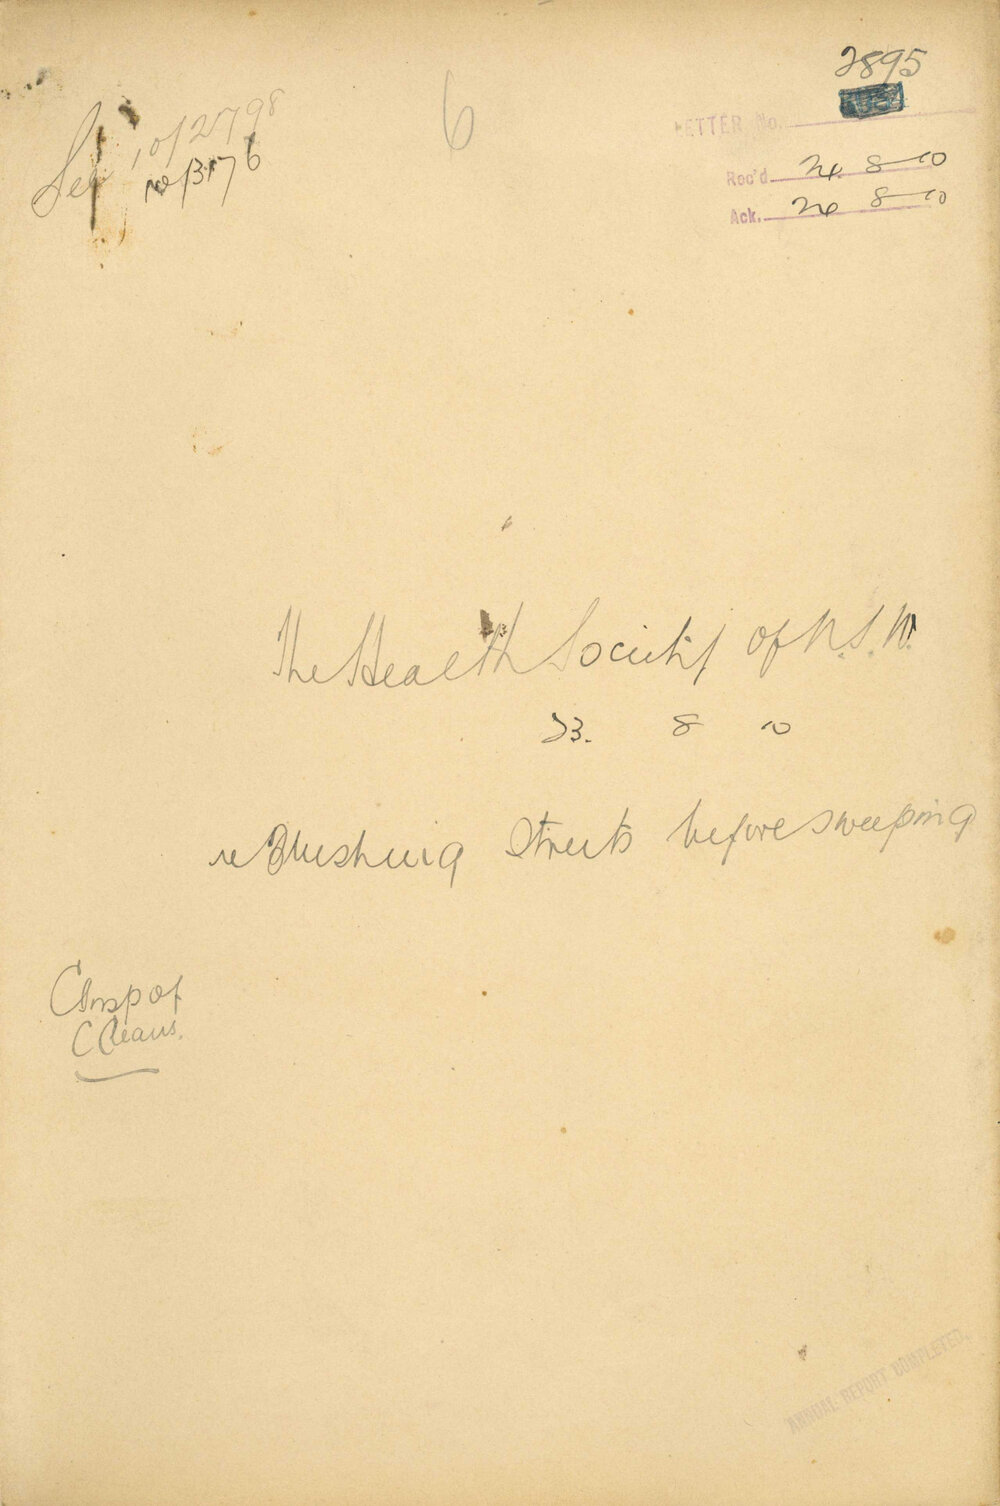 2895
LETTER No.
Rec'd 24. 8 10
Ack. 24 8 10
See 10/2798
no 3176
6
The Health Society of N.S.W.
23. 8 10
re Flushing Streets before sweeping
C Insp of
C Cleans.
ANNUAL REPORT COMPLETED